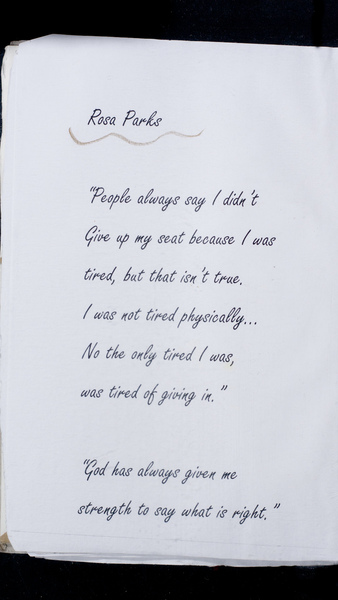 Rosa Parks
"People always say I didn't
Give up my seat because I was
tired, but that isn't true.
I was not tired physically...
No the only tired I was,
was tired of giving in."
"God has always given me
strength to say what is right."